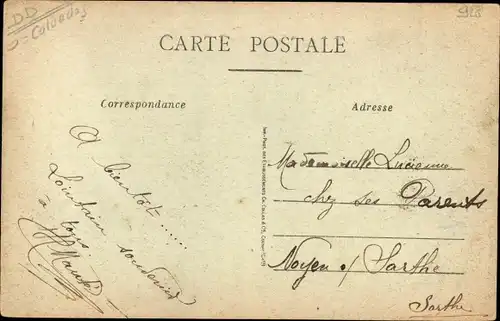 DD
J - Calvados
928
CARTE POSTALE
Correspondance
Adresse
A bientôt ......
Lointain souvenir
à tous
Mademoiselle Lucienne
chez ses Parents
Noyen s/ Sarthe
Sarthe